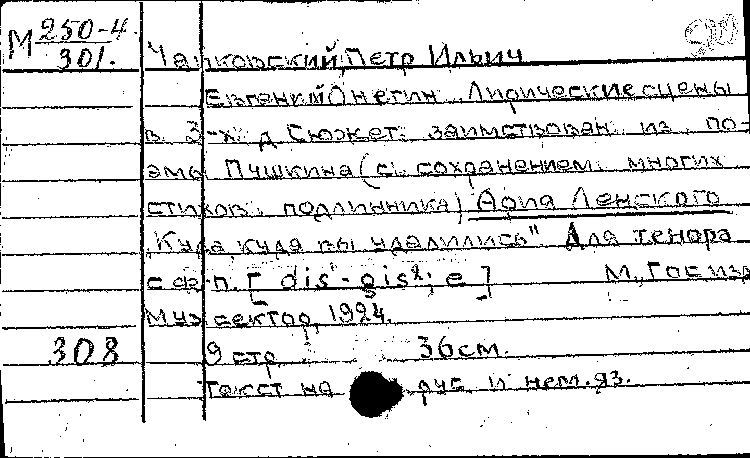 М 250-4
301.
Чайковский, Петр Ильич
Евгений Онегин. Лирические сцены
в 3-х д. Сюжет заимствован из по-
эмы Пушкина (с сохранением многих
стихов подлинника) Ария Ленского
"Куда, куда вы удалились" Для тенора
с ф-п. [dis¹-gis²; e] М., Госизд
Муз сектор, 1924.
308 9 стр 36 см.
Текст на рус. и нем. яз.